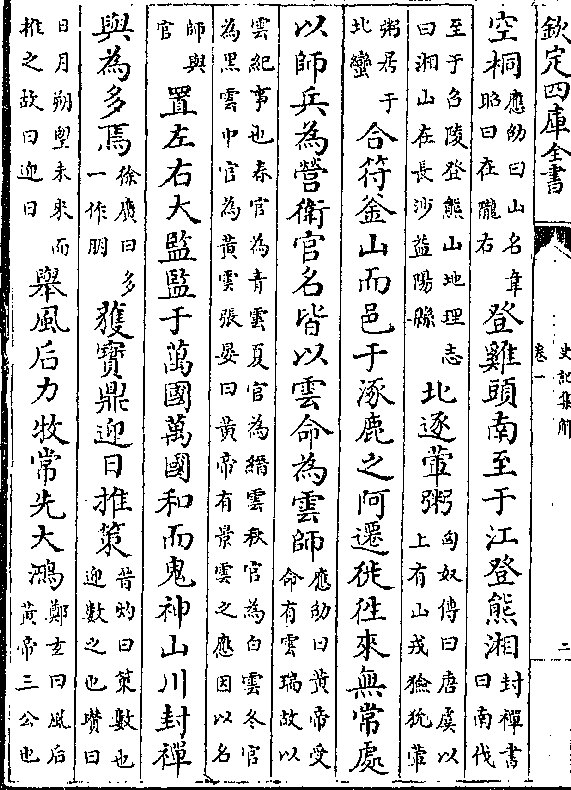 欽定四庫全書
史記集解
卷一
二
空桐應劭曰山名韋昭曰在隴右登雞頭南至于江登熊湘封禪書曰南伐
至于召陵登熊山地理志曰湘山在長沙益陽縣北逐葷粥匈奴傳曰唐虞以上有山戎獫狁葷
粥居于北蠻合符釜山而邑于涿鹿之阿遷徙徃來無常處
以師兵為營衛官名皆以雲命為雲師應劭曰黃帝受命有雲瑞故以
雲紀事也春官為青雲夏官為縉雲秋官為白雲冬官為黒雲中官為黃雲張晏曰黃帝有景雲之應因以名
師與官置左右大監監于萬國萬國和而鬼神山川封禪
與為多焉徐廣曰多一作朋獲寶鼎迎日推策晉灼曰策數也迎數之也瓚曰
日月朔望未來而推之故曰迎日舉風后力牧常先大鴻鄭玄曰風后黃帝三公也